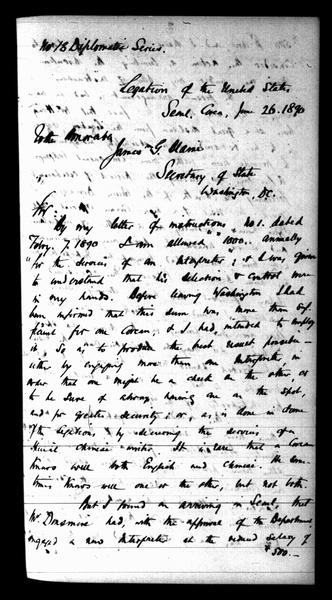 No 13 Diplomatic Series.
Legation of the United States
Seoul, Corea, June 26. 1890
To the Honorable
James G Blaine
Secretary of State
Washington, DC.
Sir
By my letter of instructions, No 1. dated
Febry. 7. 1890 I am allowed 1000. annually
"for the services of an Interpreter", & I was given
to understand that his selection & control were
in my hands. Before leaving Washington I had
been informed that this sum was more than suf
ficient for one Corean, & I had intended to employ
it, so as to produce the best result possible
either by engaging more than one Interpreter, in
order that one might be a check on the other or
to be sure of always having one on the spot,
and for greater security: or, as is done in some
of the legations, by securing the services of a
Chinese writer. It is rare that a Corean
knows well both English and Chinese. He some
times knows well one or the other, but not both.
But I found on arriving in Seoul, that
Mr. Dinsmore had, with the approval of the Department
engaged a new Interpreter at the annual salary of
$500.—